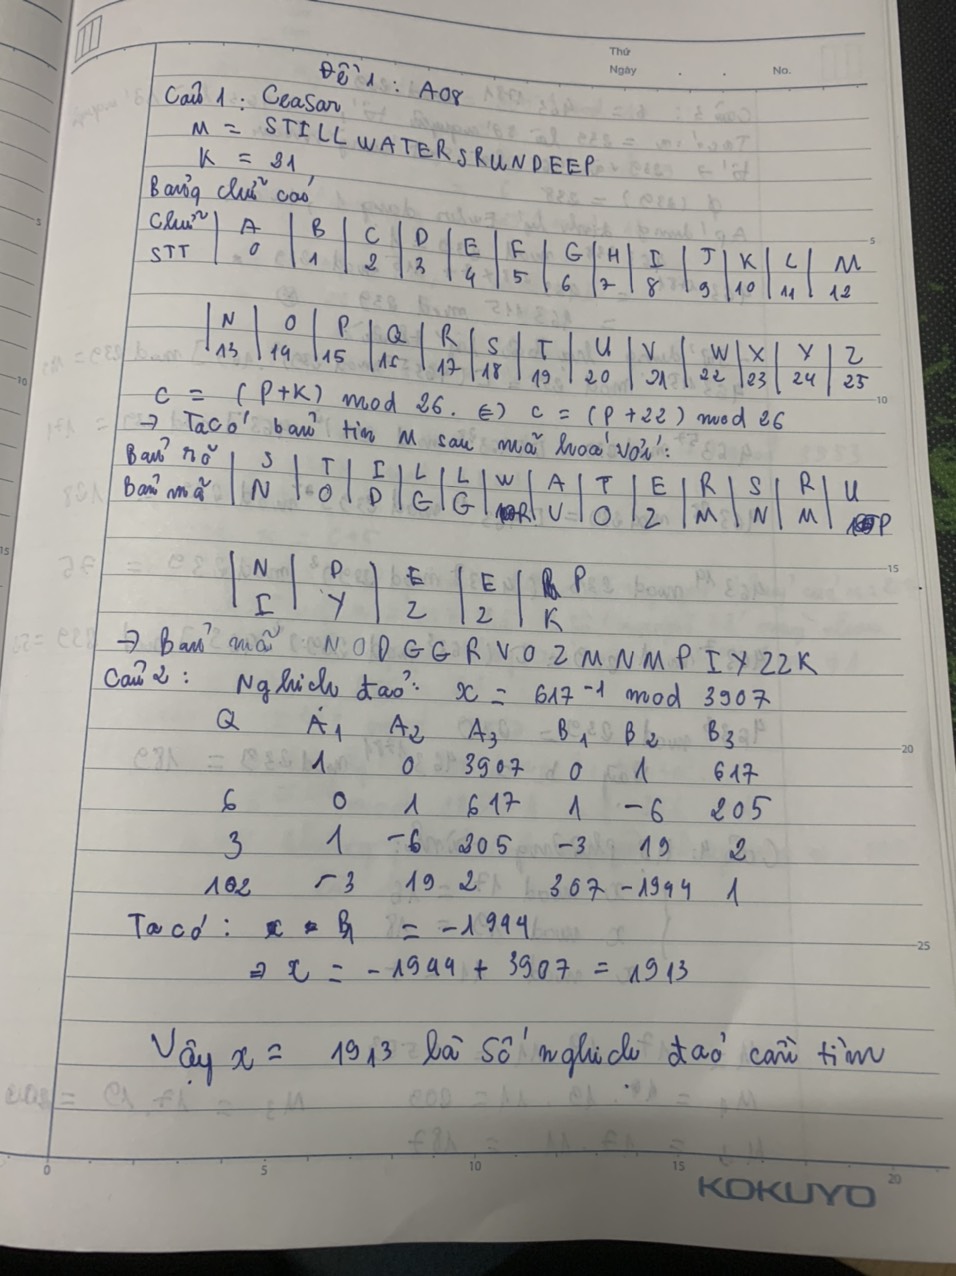 Thứ
Ngày . . No.
Đề 1 : A08
Câu 1 : Ceasar
M = STILLWATERSRUNDEEP
K = 21
Bảng chữ cái
Chữ | A | B | C | D | E | F | G | H | I | J | K | L | M
STT | 0 | 1 | 2 | 3 | 4 | 5 | 6 | 7 | 8 | 9 | 10 | 11 | 12
| N | O | P | Q | R | S | T | U | V | W | X | Y | Z
13 | 14 | 15 | 16 | 17 | 18 | 19 | 20 | 21 | 22 | 23 | 24 | 25
C = (P+K) mod 26. (=) C = (P+22) mod 26
→ Ta có bản tin M sau mã hoá với:
Bản rõ | S | T | I | L | L | W | A | T | E | R | S | R | U
Bản mã | N | O | D | G | G | R | V | O | Z | M | N | M | P
| N | D | E | E | P
I | Y | Z | Z | K
→ Bản mã : N O D G G R V O Z M N M P I Y Z Z K
Câu 2 : Nghịch đảo: x = 617⁻¹ mod 3907
Q A₁ A₂ A₃ B₁ B₂ B₃
1 0 3907 0 1 617
6 0 1 617 1 -6 205
3 1 -6 205 -3 19 2
102 -3 19 2 307 -1944 1
Ta có : = -1944
⇒ x = -1944 + 3907 = 1913
Vậy x = 1913 là số nghịch đảo cần tìm
KOKUYO